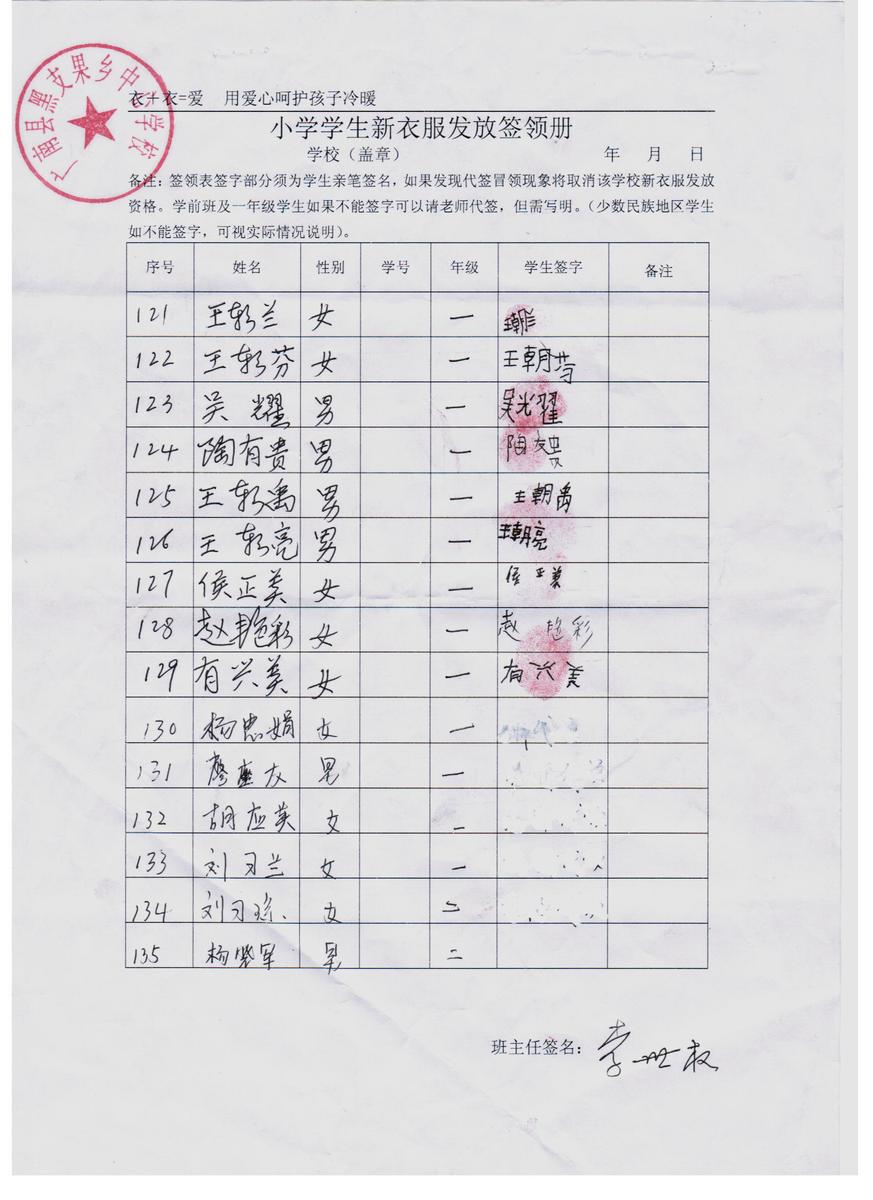 广南县黑支果乡中心学校
衣＋衣=爱 用爱心呵护孩子冷暖
小学学生新衣服发放签领册
学校（盖章） 年 月 日
备注：签领表签字部分须为学生亲笔签名，如果发现代签冒领现象将取消该学校新衣服发放
资格。学前班及一年级学生如果不能签字可以请老师代签，但需写明。（少数民族地区学生
如不能签字，可视实际情况说明）。
序号 姓名 性别 学号 年级 学生签字 备注
121 王朝兰 女 一 王朝兰
122 王朝芬 女 一 王朝芬
123 吴 耀 男 一 吴光耀
124 陶有贵 男 一 陶友贵
125 王朝禹 男 一 王朝禹
126 王朝亮 男 一 王朝亮
127 侯正美 女 一 侯正美
128 赵艳彩 女 一 赵艳彩
129 有兴美 女 一 有兴美
130 杨忠娟 女 一
131 廖座友 男 一
132 胡应美 女 一
133 刘习兰 女 一
134 刘习琼 女 二
135 杨 军 男 二
班主任签名： 李世权